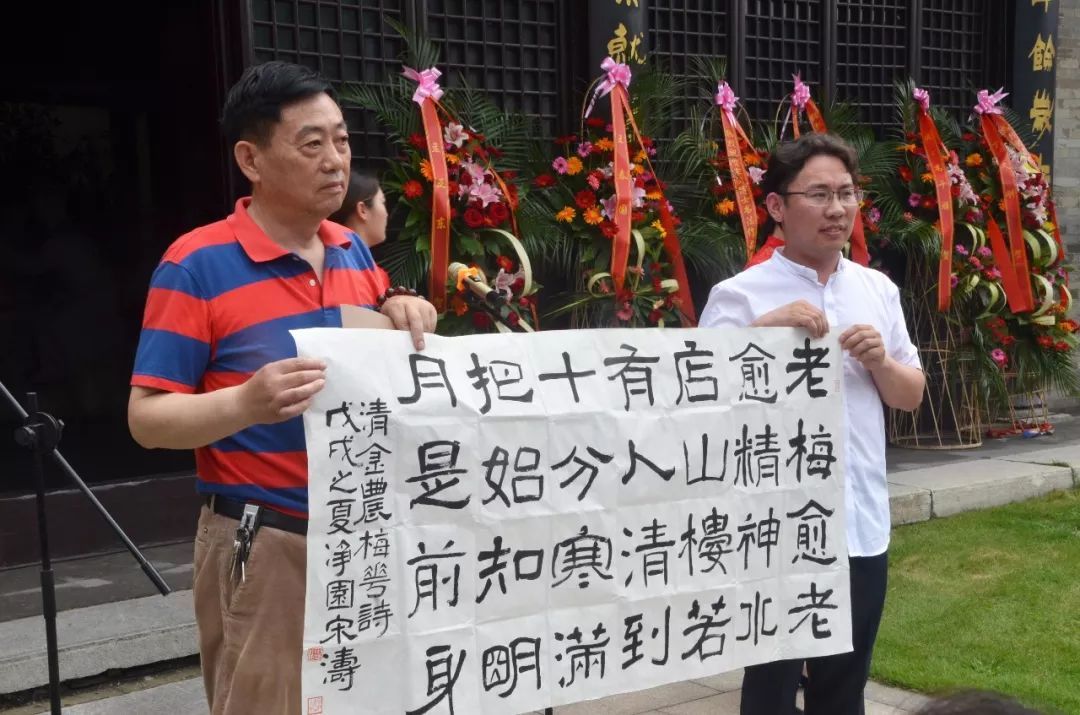 老梅愈老
愈精神水
店山樓若
有人清到
十分寒滿
把始知明
月是前身
清金農梅華詩
戊戌之夏淨園宋濤